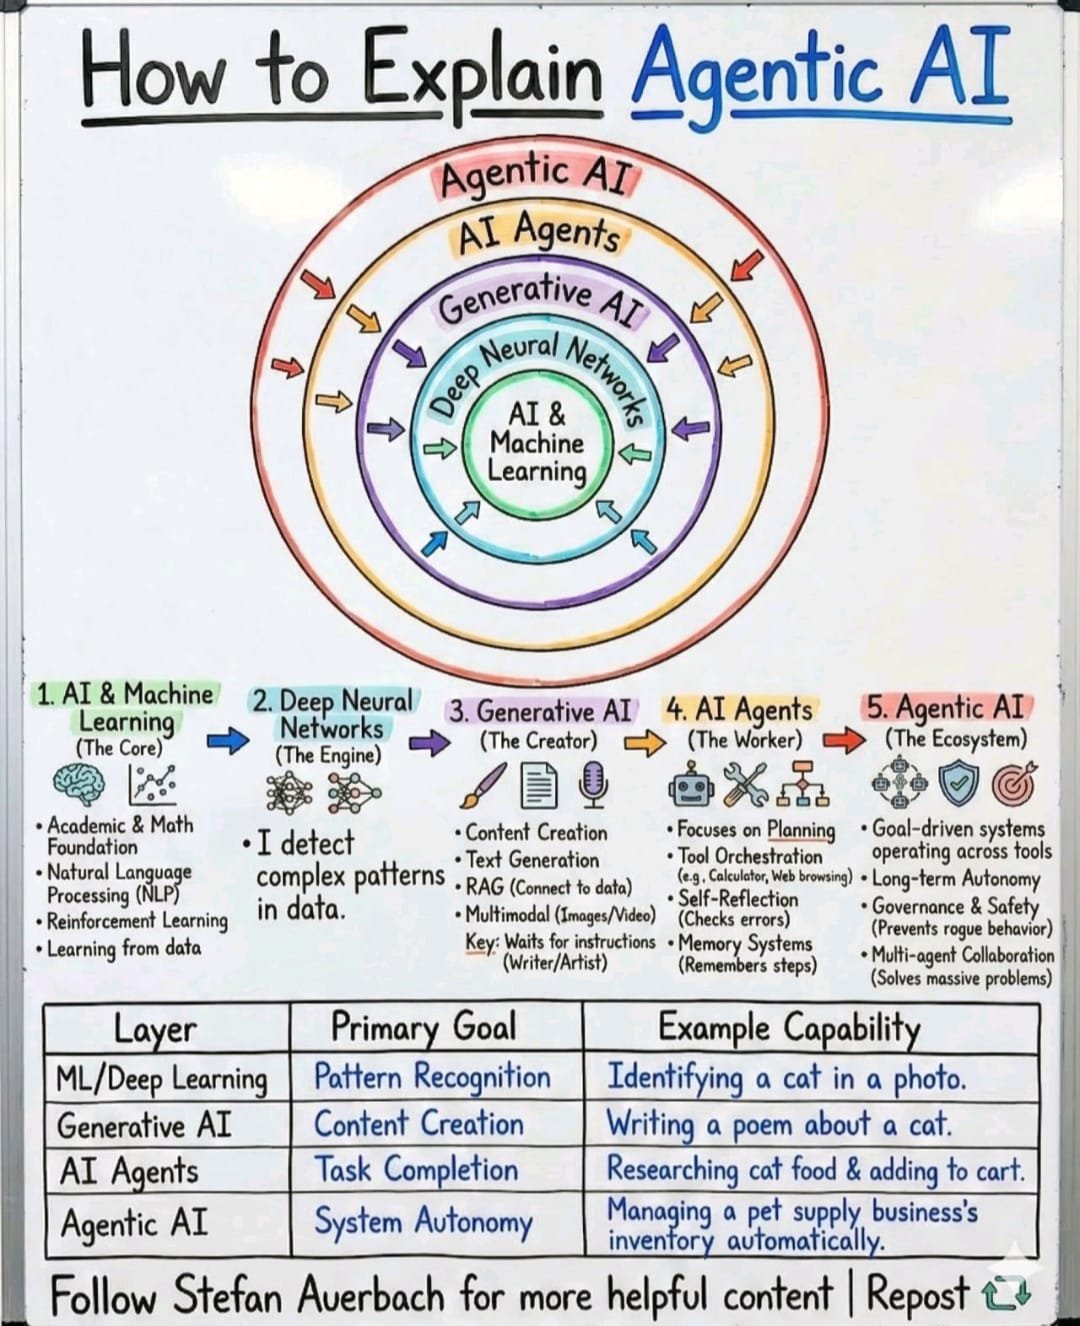 How to Explain Agentic AI
Agentic AI
AI Agents
Generative AI
Deep Neural Networks
AI &
Machine
Learning
1. AI & Machine
Learning
(The Core)
• Academic & Math
Foundation
• Natural Language
Processing (NLP)
• Reinforcement Learning
• Learning from data
2. Deep Neural
Networks
(The Engine)
• I detect
complex patterns
in data.
3. Generative AI
(The Creator)
• Content Creation
• Text Generation
• RAG (Connect to data)
• Multimodal (Images/Video)
Key: Waits for instructions
(Writer/Artist)
4. AI Agents
(The Worker)
• Focuses on Planning
• Tool Orchestration
(e.g, Calculator, Web browsing)
• Self-Reflection
(Checks errors)
• Memory Systems
(Remembers steps)
5. Agentic AI
(The Ecosystem)
• Goal-driven systems
operating across tools
• Long-term Autonomy
• Governance & Safety
(Prevents rogue behavior)
• Multi-agent Collaboration
(Solves massive problems)
Layer Primary Goal Example Capability
ML/Deep Learning Pattern Recognition Identifying a cat in a photo.
Generative AI Content Creation Writing a poem about a cat.
AI Agents Task Completion Researching cat food & adding to cart.
Agentic AI System Autonomy Managing a pet supply business's
inventory automatically.
Follow Stefan Auerbach for more helpful content | Repost